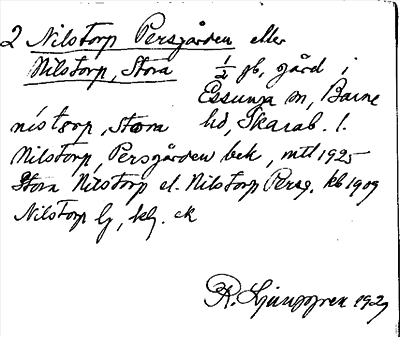 2 Nilstorp Persgården eller
Nilstorp, Stora 1/2 gb, gård i
Essunga sn, Barne
nístorp, Stora hd, Skarab. l.
Nilstorp, Persgården bek, mtl 1925
Stora Nilstorp el. Nilstorp Persg. kb 1909
Nilstorp lj, kg. ek
R. Ljunggren 1929